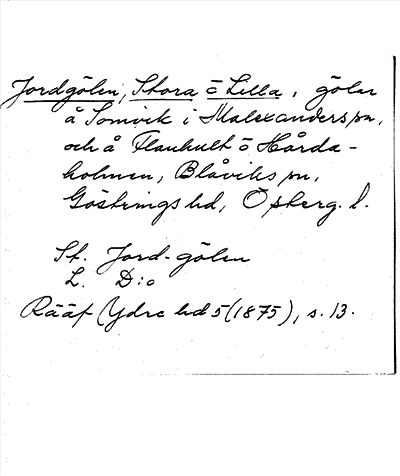 Jordgölen, Stora o Lilla, gölar
å Somvik i Malexanders sn,
och å Flauhult o Hårda-
holmen, Blåviks sn,
Göstrings hd, Österg. l.
St. Jord-gölen
L. D:o
Rääf Ydre hd 5 (1875), s. 13.